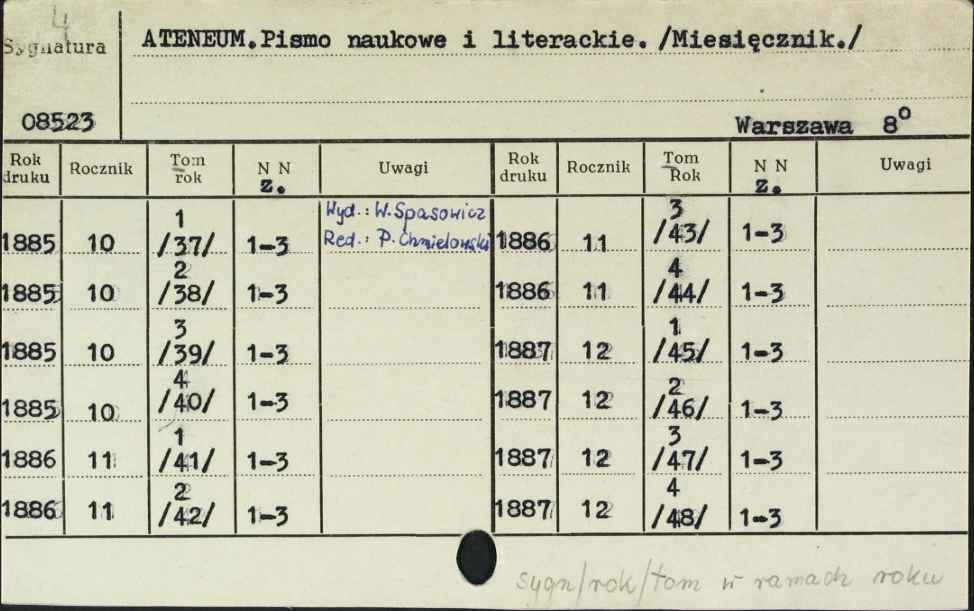 4
Sygnatura
ATENEUM.Pismo naukowe i literackie. /Miesięcznik./
08523
Warszawa 8°
Rok druku Rocznik Tom rok N N z. Uwagi Rok druku Rocznik Tom Rok N N z. Uwagi
1885 10 1 /37/ 1-3 Wyd.: W. Spasowicz Red.: P. Chmielowski 1886 11 3 /43/ 1-3
1885 10 2 /38/ 1-3 1886 11 4 /44/ 1-3
1885 10 3 /39/ 1-3 1887 12 1 /45/ 1-3
1885 10 4 /40/ 1-3 1887 12 2 /46/ 1-3
1886 11 1 /41/ 1-3 1887 12 3 /47/ 1-3
1886 11 2 /42/ 1-3 1887 12 4 /48/ 1-3
sygn/rok/tom w ramach roku